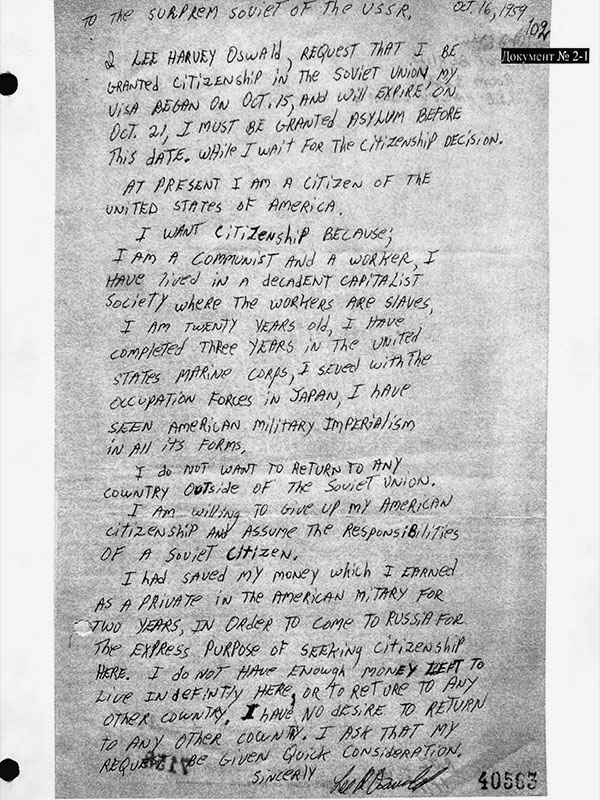 TO THE SUPREM SOVIET OF THE USSR.
OCT. 16, 1959
102
Документ № 2-1
I LEE HARVEY OSWALD, REQUEST THAT I BE
GRANTED CITIZENSHIP IN THE SOVIET UNION, MY
VISA BEGAN ON OCT. 15, AND WILL EXPIRE ON
OCT. 21, I MUST BE GRANTED ASYLUM BEFORE
THIS DATE. WHILE I WAIT FOR THE CITIZENSHIP DECISION.
AT PRESENT I AM A CITIZEN OF THE
UNITED STATES OF AMERICA.
I WANT CITIZENSHIP BECAUSE;
I AM A COMMUNIST AND A WORKER, I
HAVE LIVED IN A DECADENT CAPITALIST
SOCIETY WHERE THE WORKERS ARE SLAVES,
I AM TWENTY YEARS OLD, I HAVE
COMPLETED THREE YEARS IN THE UNITED
STATES MARINE CORPS, I SEVED WITH THE
OCCUPATION FORCES IN JAPAN, I HAVE
SEEN AMERICAN MILITARY IMPERIALISM
IN ALL ITS FORMS,
I DO NOT WANT TO RETURN TO ANY
COUNTRY OUTSIDE OF THE SOVIET UNION.
I AM WILLING TO GIVE UP MY AMERICAN
CITIZENSHIP AND ASSUME THE RESPONSIBILITIES
OF A SOVIET CITIZEN.
I HAD SAVED MY MONEY WHICH I EARNED
AS A PRIVATE IN THE AMERICAN MITARY FOR
TWO YEARS, IN ORDER TO COME TO RUSSIA FOR
THE EXPRESS PURPOSE OF SEEKING CITIZENSHIP
HERE. I DO NOT HAVE ENOUGH MONEY LEFT TO
LIVE INDEFINTLY HERE, OR TO RETURE TO ANY
OTHER COUNTRY. I HAVE NO DESIRE TO RETURN
TO ANY OTHER COUNTRY. I ASK THAT MY
REQUEST BE GIVEN QUICK CONSIDERATION.
SINCERLY
40563